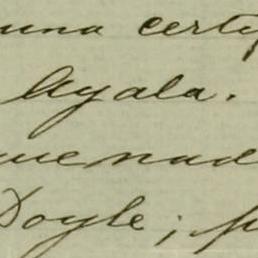 una certi
Ayala.
que nad
Doyle; p